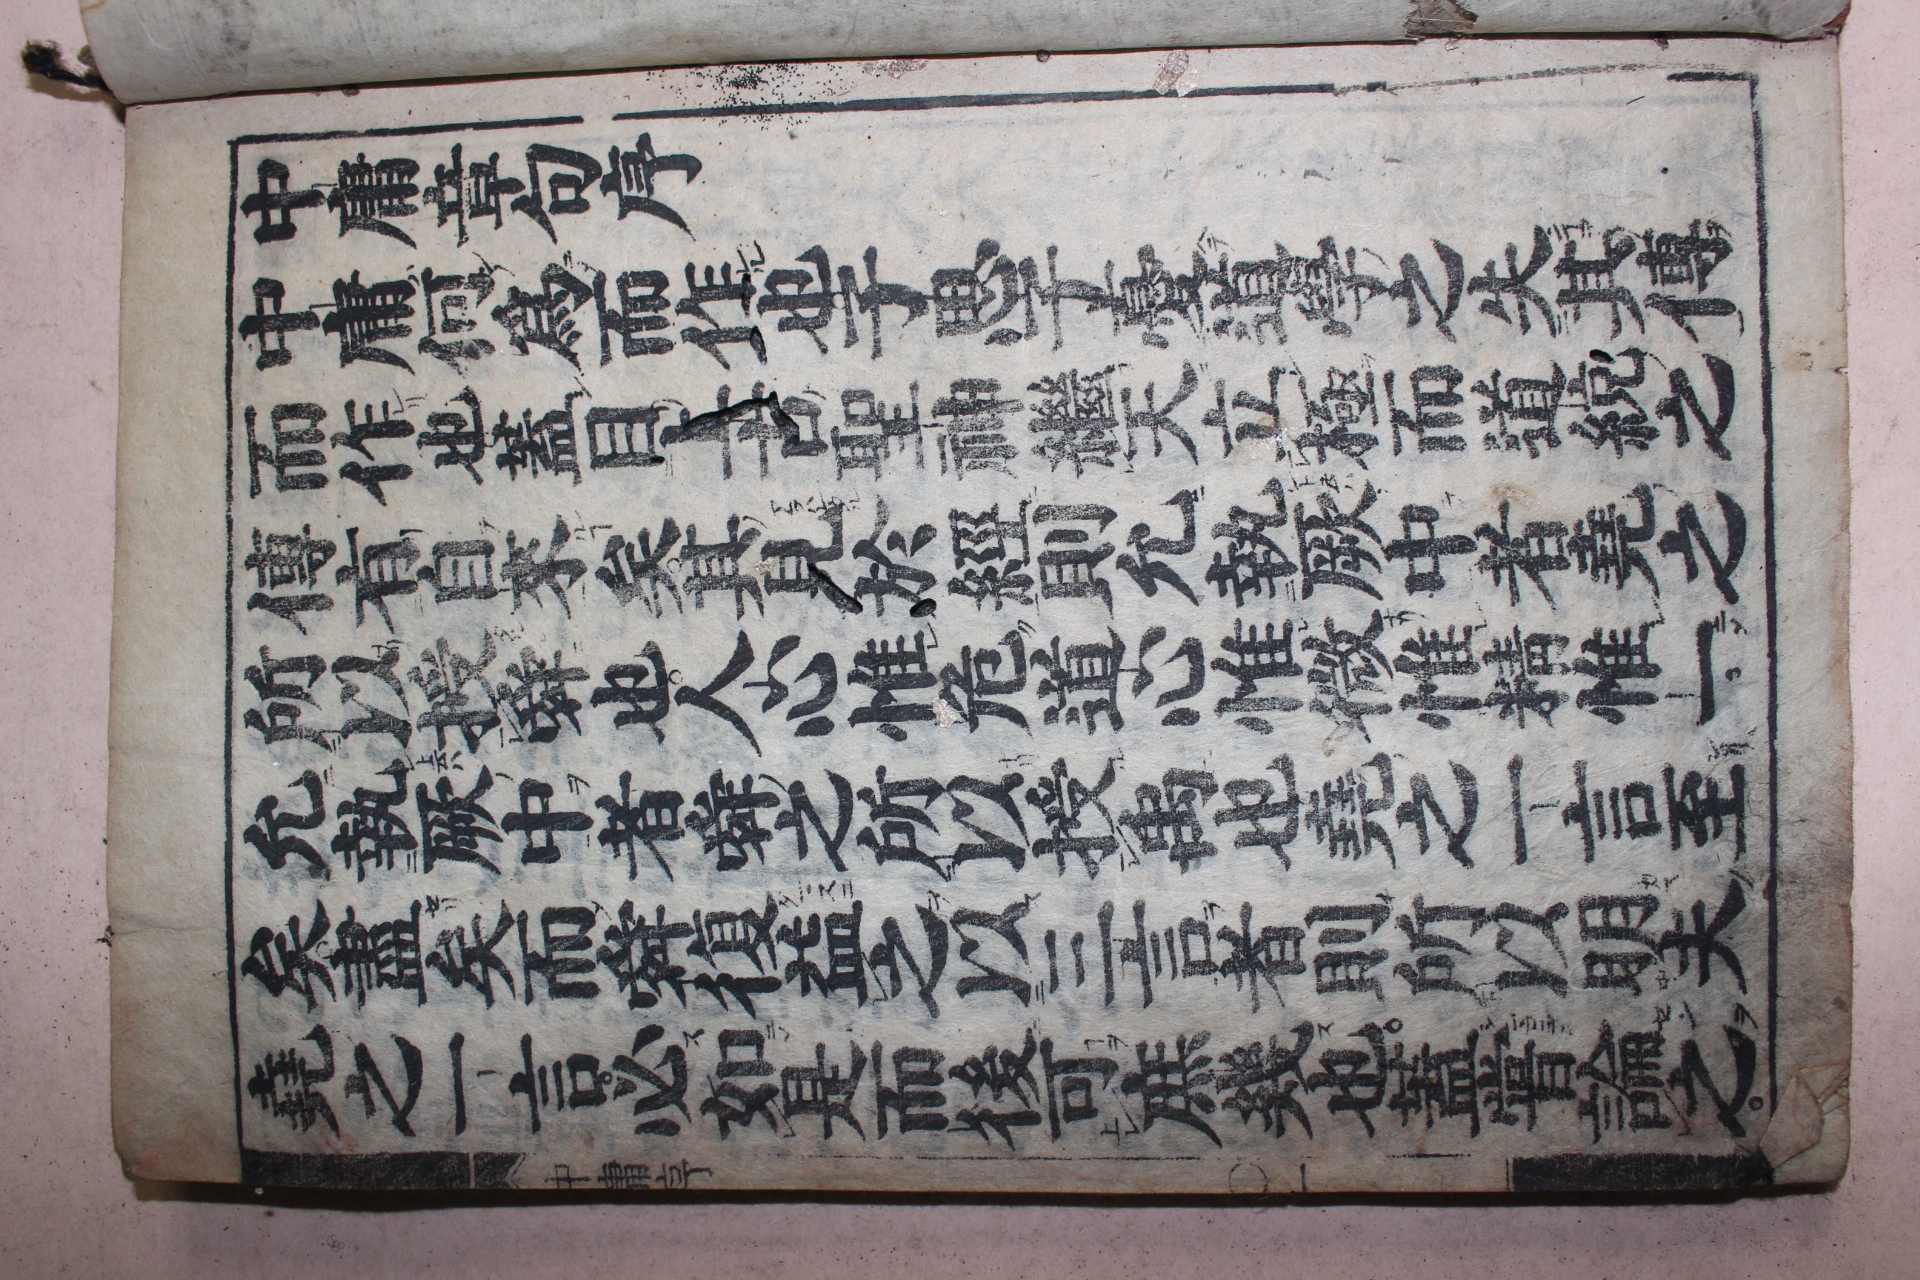 中庸章句序
中庸何爲而作也子思子憂道學之失其傳
而作也蓋自上古聖神繼天立極而道統之
傳有自來矣其見於經則允執厥中者堯之
所以授舜也人心惟危道心惟微惟精惟一
允執厥中者舜之所以授禹也堯之一言至
矣盡矣而舜復益之以三言者則所以明夫
堯之一言必如是而後可庶幾也蓋嘗論之
中庸序
一